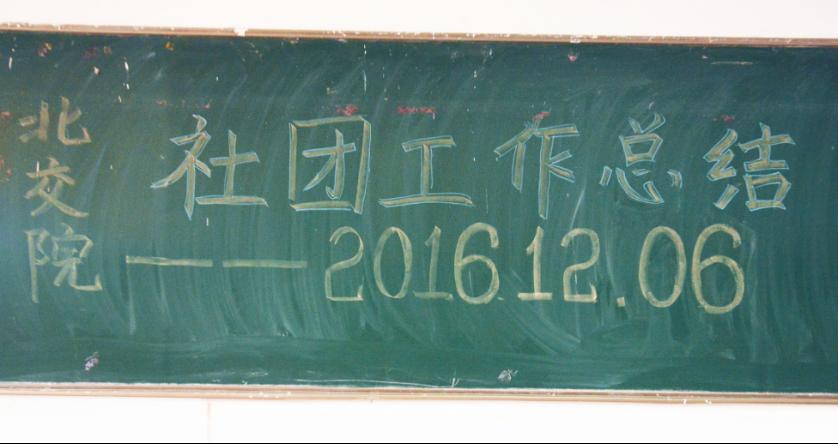 北交院
社团工作总结
——2016.12.06